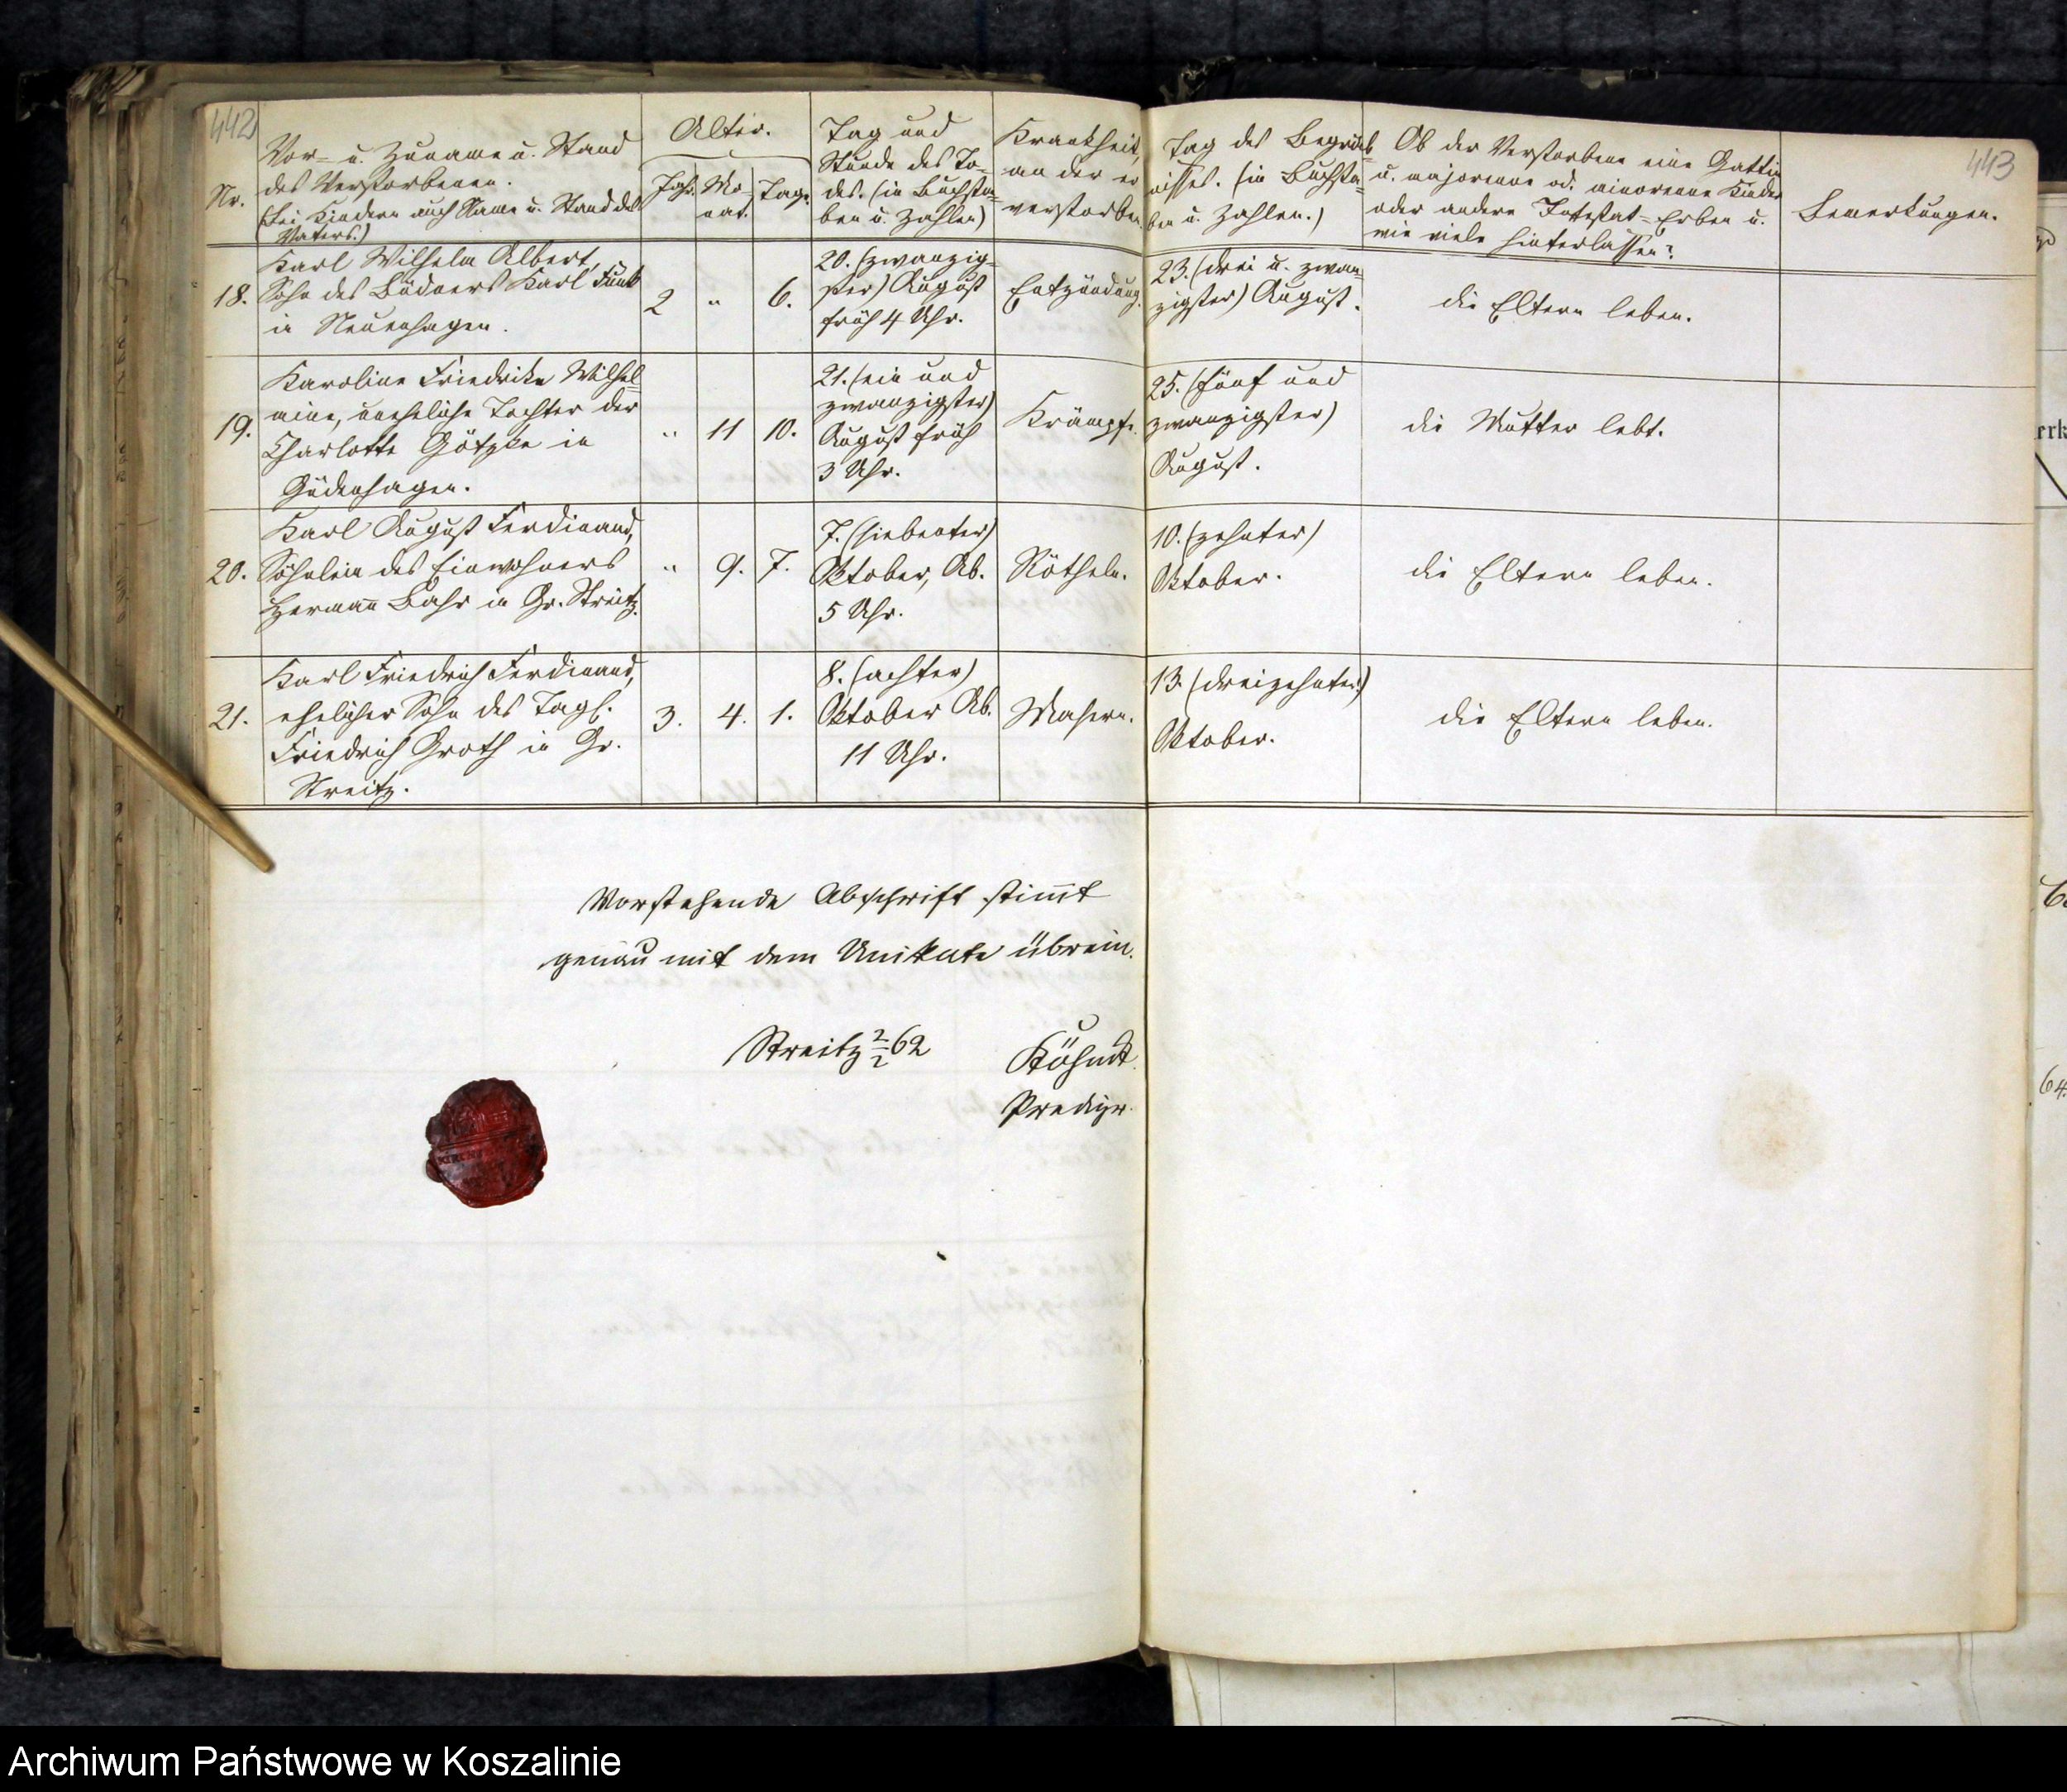 442
443
Nr.
Vor- u. Zuname u. Stand
des Verstorbenen.
(bei Kindern auch Name u. Stand des
Vaters.)
Alter.
Jahr. Mo- Tage.
nat.
Tag und
Stunde des To-
des. (in Buchsta-
ben u. Zahlen)
Krankheit,
an der er
verstorben.
Tag des Begräb-
nisses. (in Buchsta-
ben u. Zahlen.)
Ob der Verstorbene eine Gattin
u. majorenne od. minorenne Kinder
oder andere Intestat-Erben u.
wie viele hinterlassen?
Bemerkungen.
18.
Karl Wilhelm Albert,
Sohn des Büdners Karl Funk
in Neuenhagen.
2 " 6.
20. (zwanzig-
ster) August
früh 4 Uhr.
Entzündung.
23. (drei u. zwan-
zigster) August.
die Eltern leben.
19.
Karoline Friedrike Wilhel-
mine, uneheliche Tochter der
Charlotte Götzke in
Güdenhagen.
" 11 10.
21. (ein und
zwanzigster)
August früh
3 Uhr.
Krämpfe.
25. (fünf und
zwanzigster)
August.
die Mutter lebt.
20.
Karl August Ferdinand,
Söhnlein des Einwohners
Hermann Bahr in Gr. Streitz.
" 9. 7.
7. (siebenter)
Oktober, Ab.
5 Uhr.
Rötheln.
10. (zehnter)
Oktober.
die Eltern leben.
21.
Karl Friedrich Ferdinand,
ehelicher Sohn des Tagl.
Friedrich Groth in Gr.
Streitz.
3. 4. 1.
8. (achter)
Oktober Ab.
11 Uhr.
Masern.
13. (dreizehnter)
Oktober.
die Eltern leben.
Vorstehende Abschrift stimt
genau mit dem Unikate überein.
Streitz 2/1 62
Predigr.
64.
Archiwum Państwowe w Koszalinie